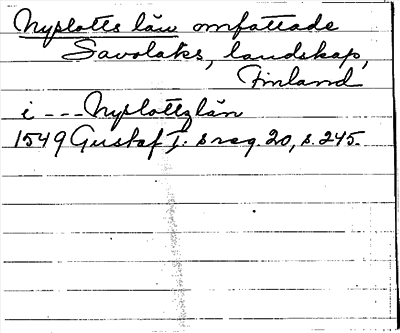 Nyslotts län omfattade
Savolaks, landskap,
Finland
i --- Nyslottzlän
1549 Gustaf I:s reg. 20, s. 245.